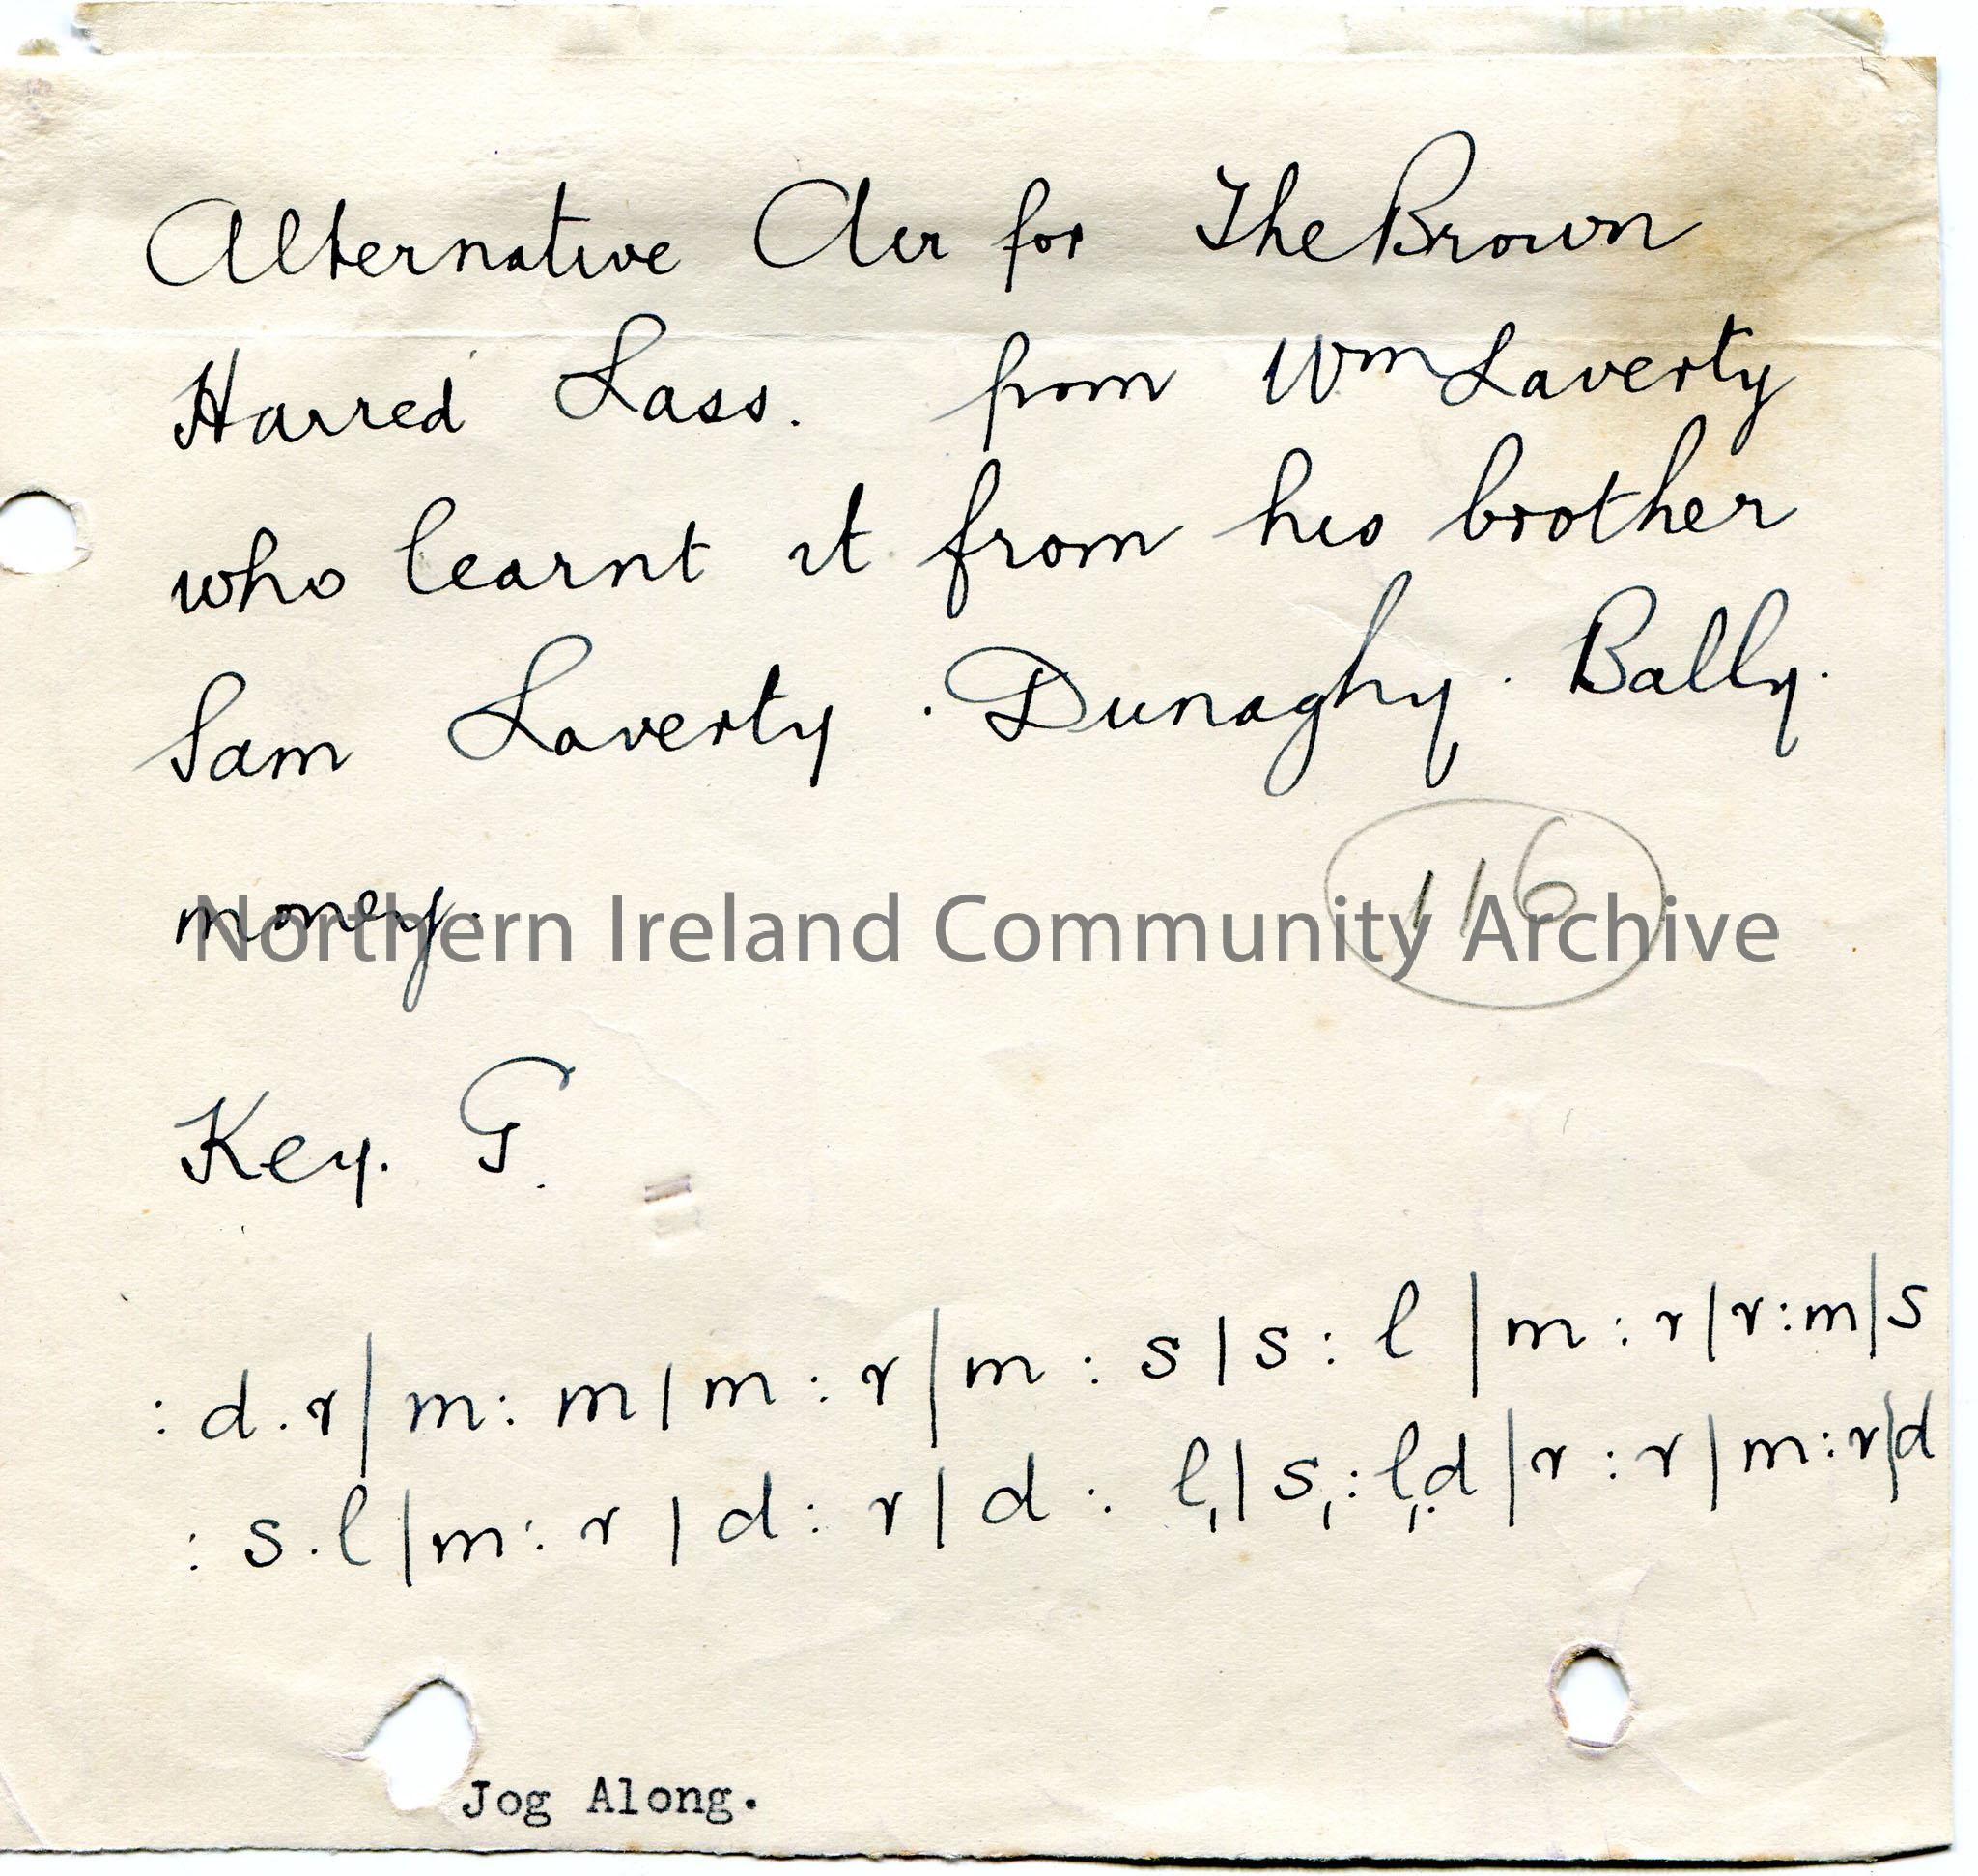 Alternative Air for The Brown
Haired Lass. from Wm Laverty
who learnt it from his brother
Sam Laverty. Dunaghy. Bally.
money.
116
Northern Ireland Community Archive
Key. G.
: d.r | m : m | m : r | m : s | s : l | m : r | r : m | s
: s.l | m : r | d : r | d : l, | s, : l,.d | r : r | m : r | d
Jog Along.